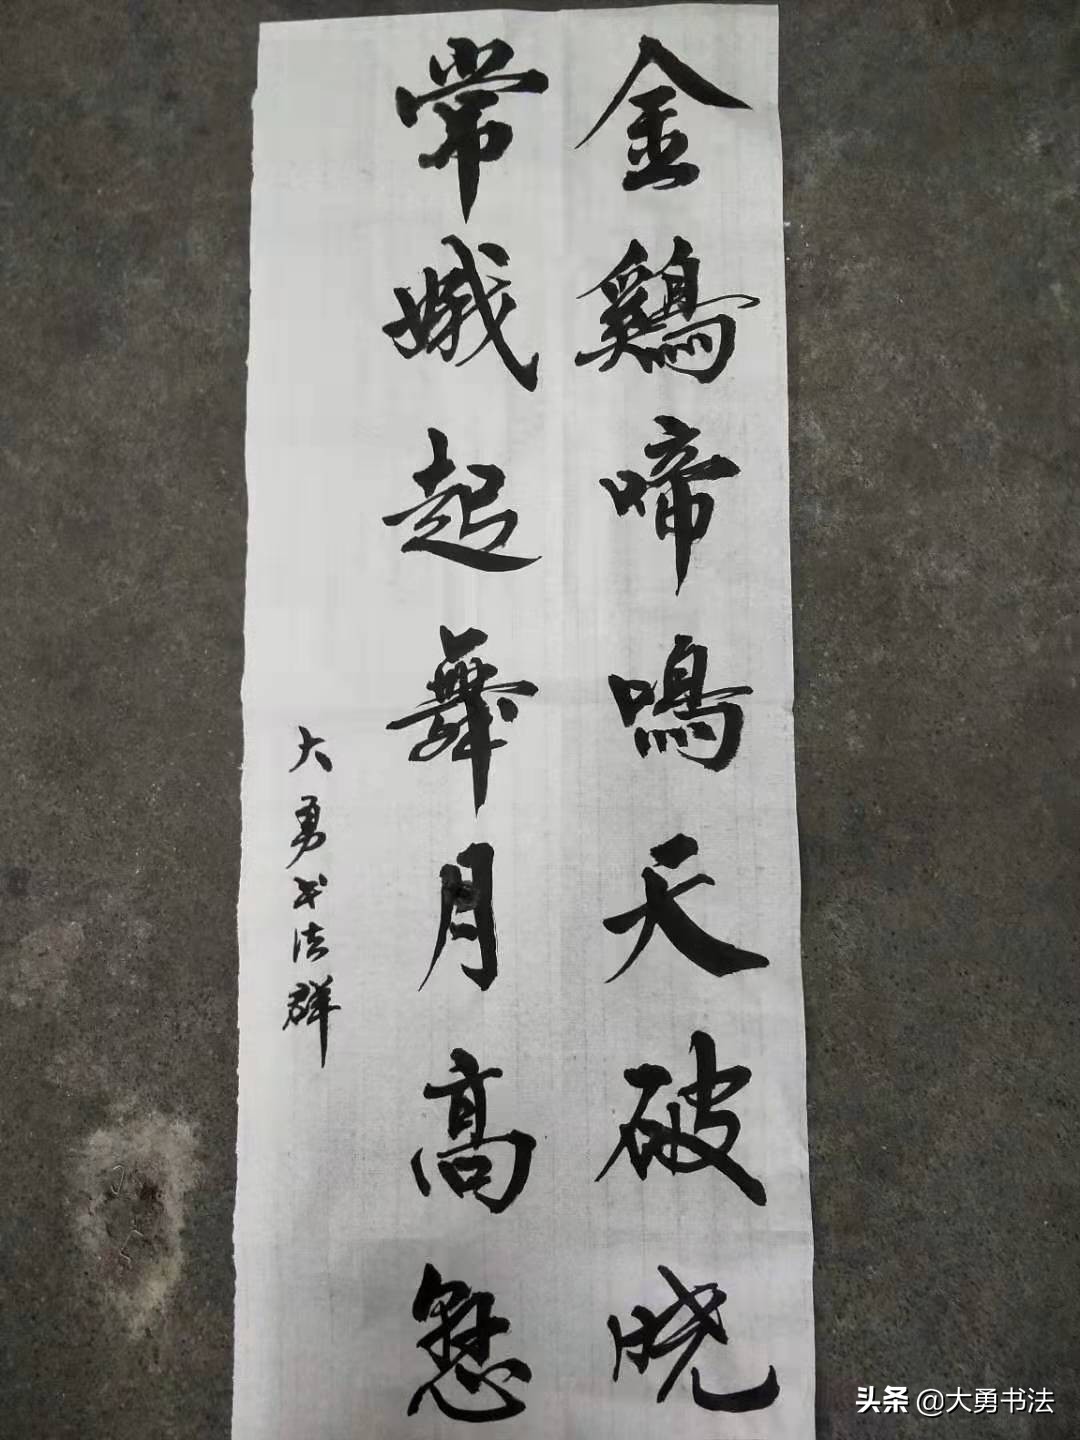 金鷄啼鳴天破晓
常娥起舞月高懸
大勇书法群
头条 @大勇书法